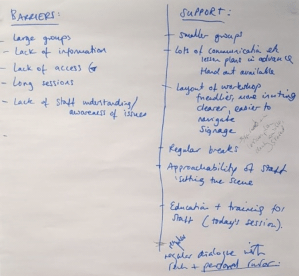 BARRIERS:
- Large groups
- Lack of information
- Lack of access
- Long sessions
- Lack of Staff understanding/
awareness of issues
-
SUPPORT:
- Smaller groups
- Lots of communication eh
lesson plans in advance &
Hand out available
- Layout of workshop
friendlier, more inviting
clearer, easier to
navigate
Signage
- Regular breaks
- Approachability of staff
setting the scene
- Education + training for
staff (today's session).
- regular dialogue with
+ personal